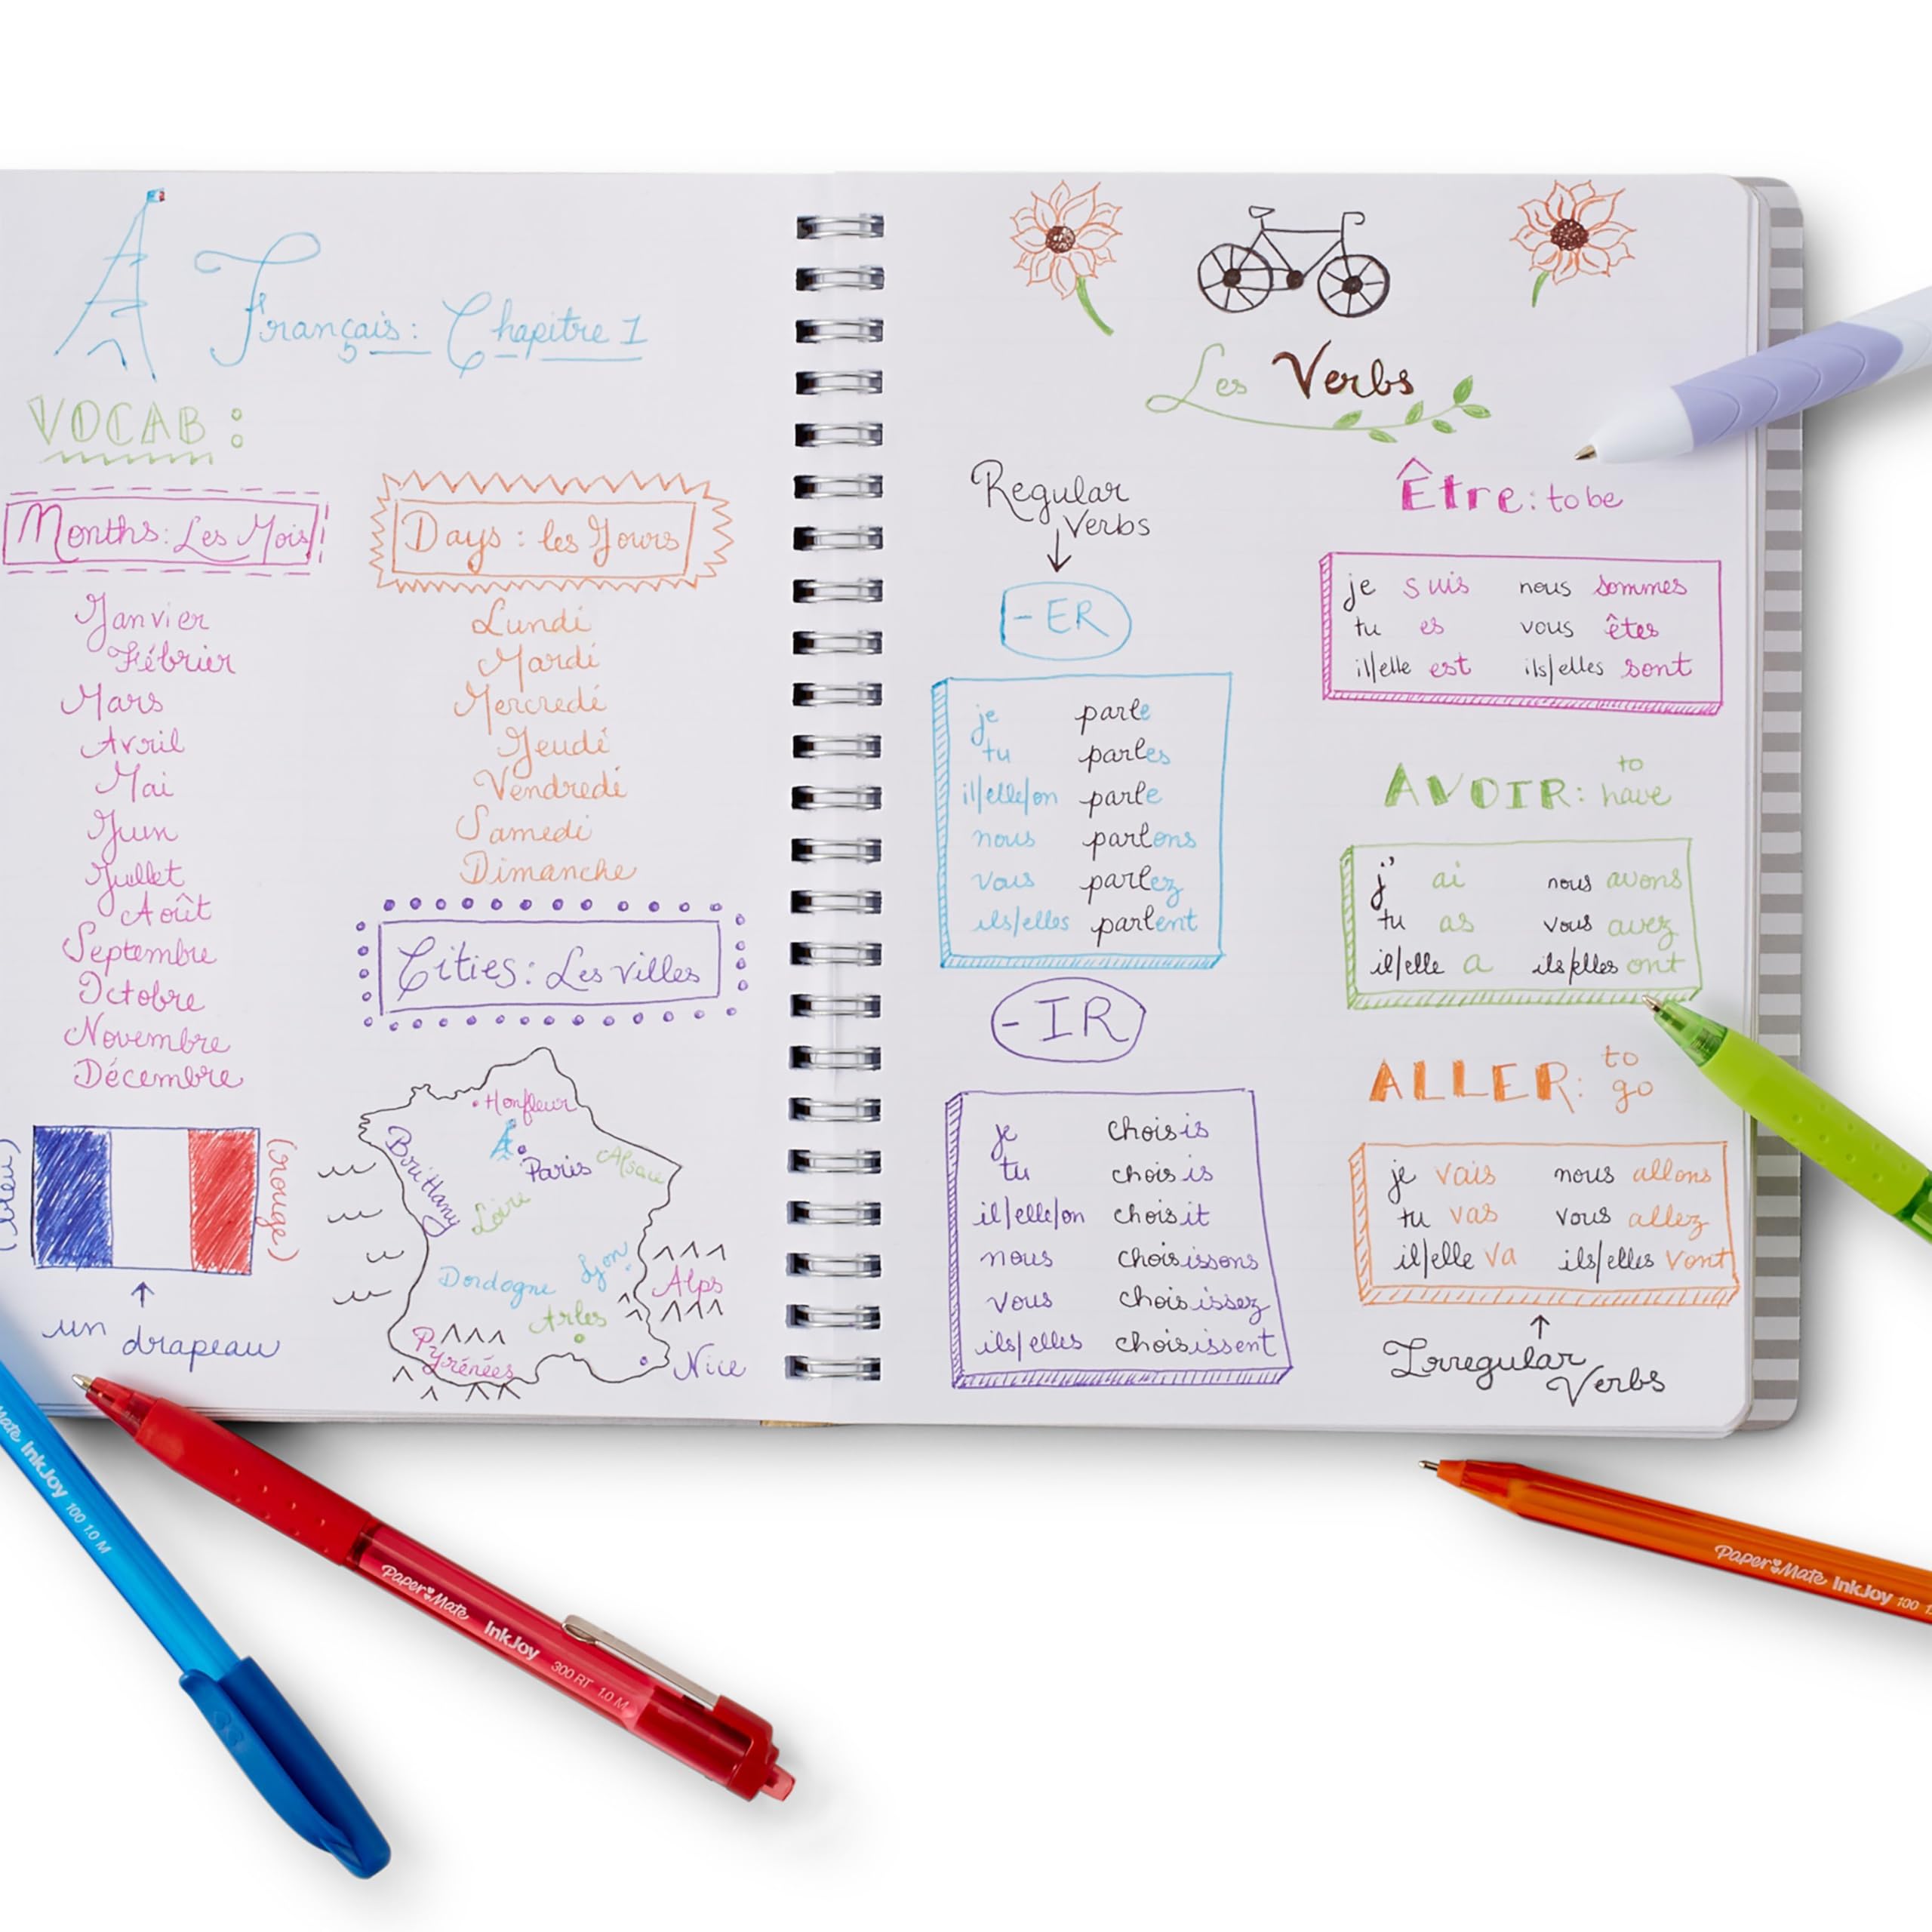 Français: Chapitre 1
VOCAB:
Months: Les Mois
Janvier
Fébrier
Mars
Avril
Mai
Juin
Juillet
Août
Septembre
Octobre
Novembre
Décembre
(bleu)
(rouge)
un drapeau
Days: les Jours
Lundi
Mardi
Mercredi
Jeudi
Vendredi
Samedi
Dimanche
Cities: Les villes
Honfleur
Paris
Alsace
Brittany
Loire
Lyon
Dordogne
Alps
Arles
Pyrénées
Nice
Les Verbs
Regular
Verbs
-ER
je parle
tu parles
il/elle/on parle
nous parlons
vous parlez
ils/elles parlent
-IR
je choisis
tu choisis
il/elle/on choisit
nous choisissons
vous choisissez
ils/elles choisissent
Être: to be
je suis nous sommes
tu es vous êtes
il/elle est ils/elles sont
AVOIR: to have
j' ai nous avons
tu as vous avez
il/elle a ils/elles ont
ALLER: to go
je vais nous allons
tu vas vous allez
il/elle va ils/elles vont
Irregular
Verbs
Mate InkJoy 100 1.0 M
Paper Mate InkJoy 300 RT 1.0 M
Paper Mate InkJoy 100